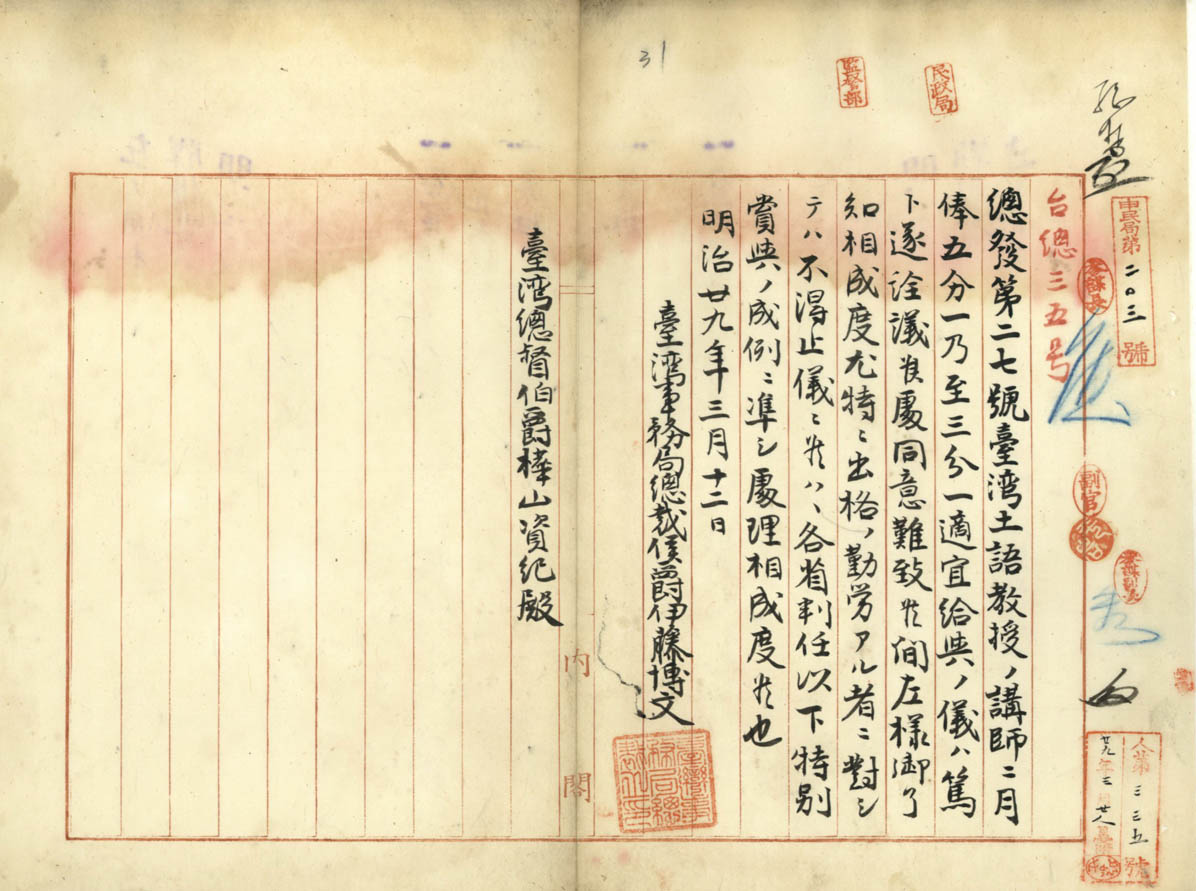 31
監督部
民政局
民局第二〇三號
台總三五号
總發第二七號臺湾土語教授ノ講師ニ月
俸五分一乃至三分一適宜給與ノ儀ハ篤
ト遂詮議候處同意難致候間左様御了
知相成度尤特ニ出格ノ勤労アル者ニ對シ
テハ不得止儀ニ候ハヽ各省判任以下特別
賞與ノ成例ニ準シ處理相成度候也
明治廿九年三月十二日
臺湾事務局總裁侯爵伊藤博文
臺湾總督伯爵樺山資紀殿
内閣
副官
人第三三五號